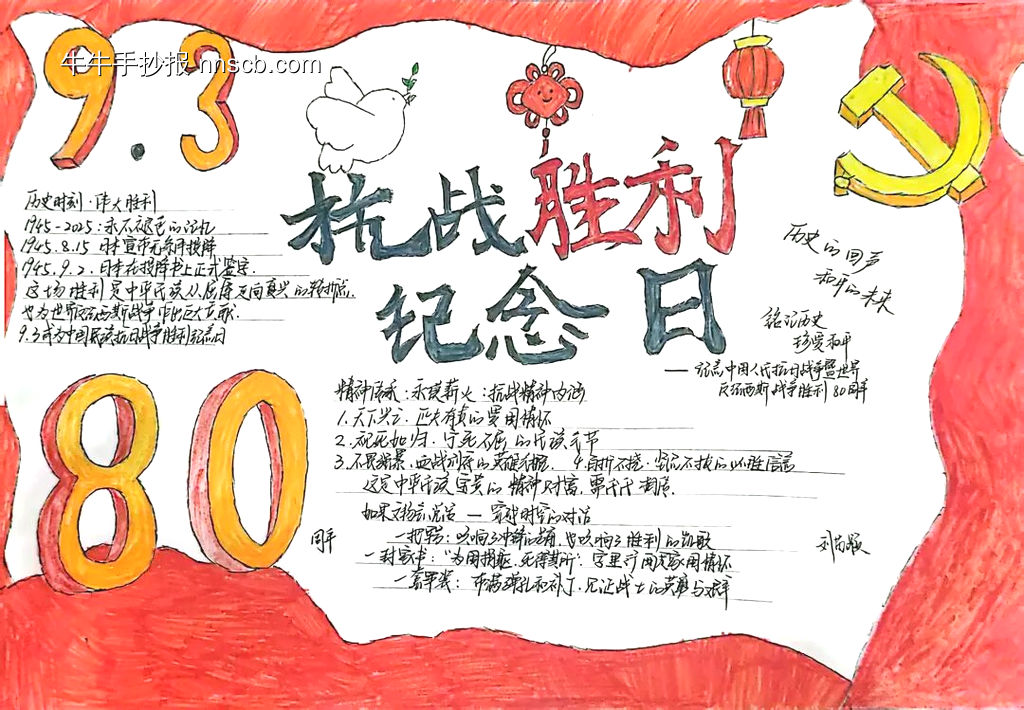 牛牛手抄报 nnscb.com
9.3
抗战胜利
纪念日
历史时刻·伟大胜利
1945-2025:永不褪色的记忆
1945.8.15 日本宣布无条件投降
1945.9.2.日本在投降书上正式签字.
这场胜利是中华民族从屈辱走向复兴的转折点,
也为世界反法西斯战争作出巨大贡献.
9.3成为中国人民抗日战争胜利纪念日
历史的回声
和平的未来
铭记历史
珍爱和平
——纪念中国人民抗日战争暨世界
反法西斯战争胜利80周年
80周年
精神传承:永续薪火:抗战精神内涵
1.天下兴亡、匹夫有责的爱国情怀
2.视死如归、宁死不屈的民族气节
3.不畏强暴、血战到底的英雄气概. 4.百折不挠、坚忍不拔的必胜信念
这是中华民族宝贵的精神财富,需代代相传.
如果文物会说话——穿越时空的对话
一把军号:吹响了冲锋的号角,也吹响了胜利的凯歌
一封家书:"为国捐躯,死得其所":字里行间是家国情怀
一套军装:布满弹孔和补丁,见证战士的英勇与艰辛